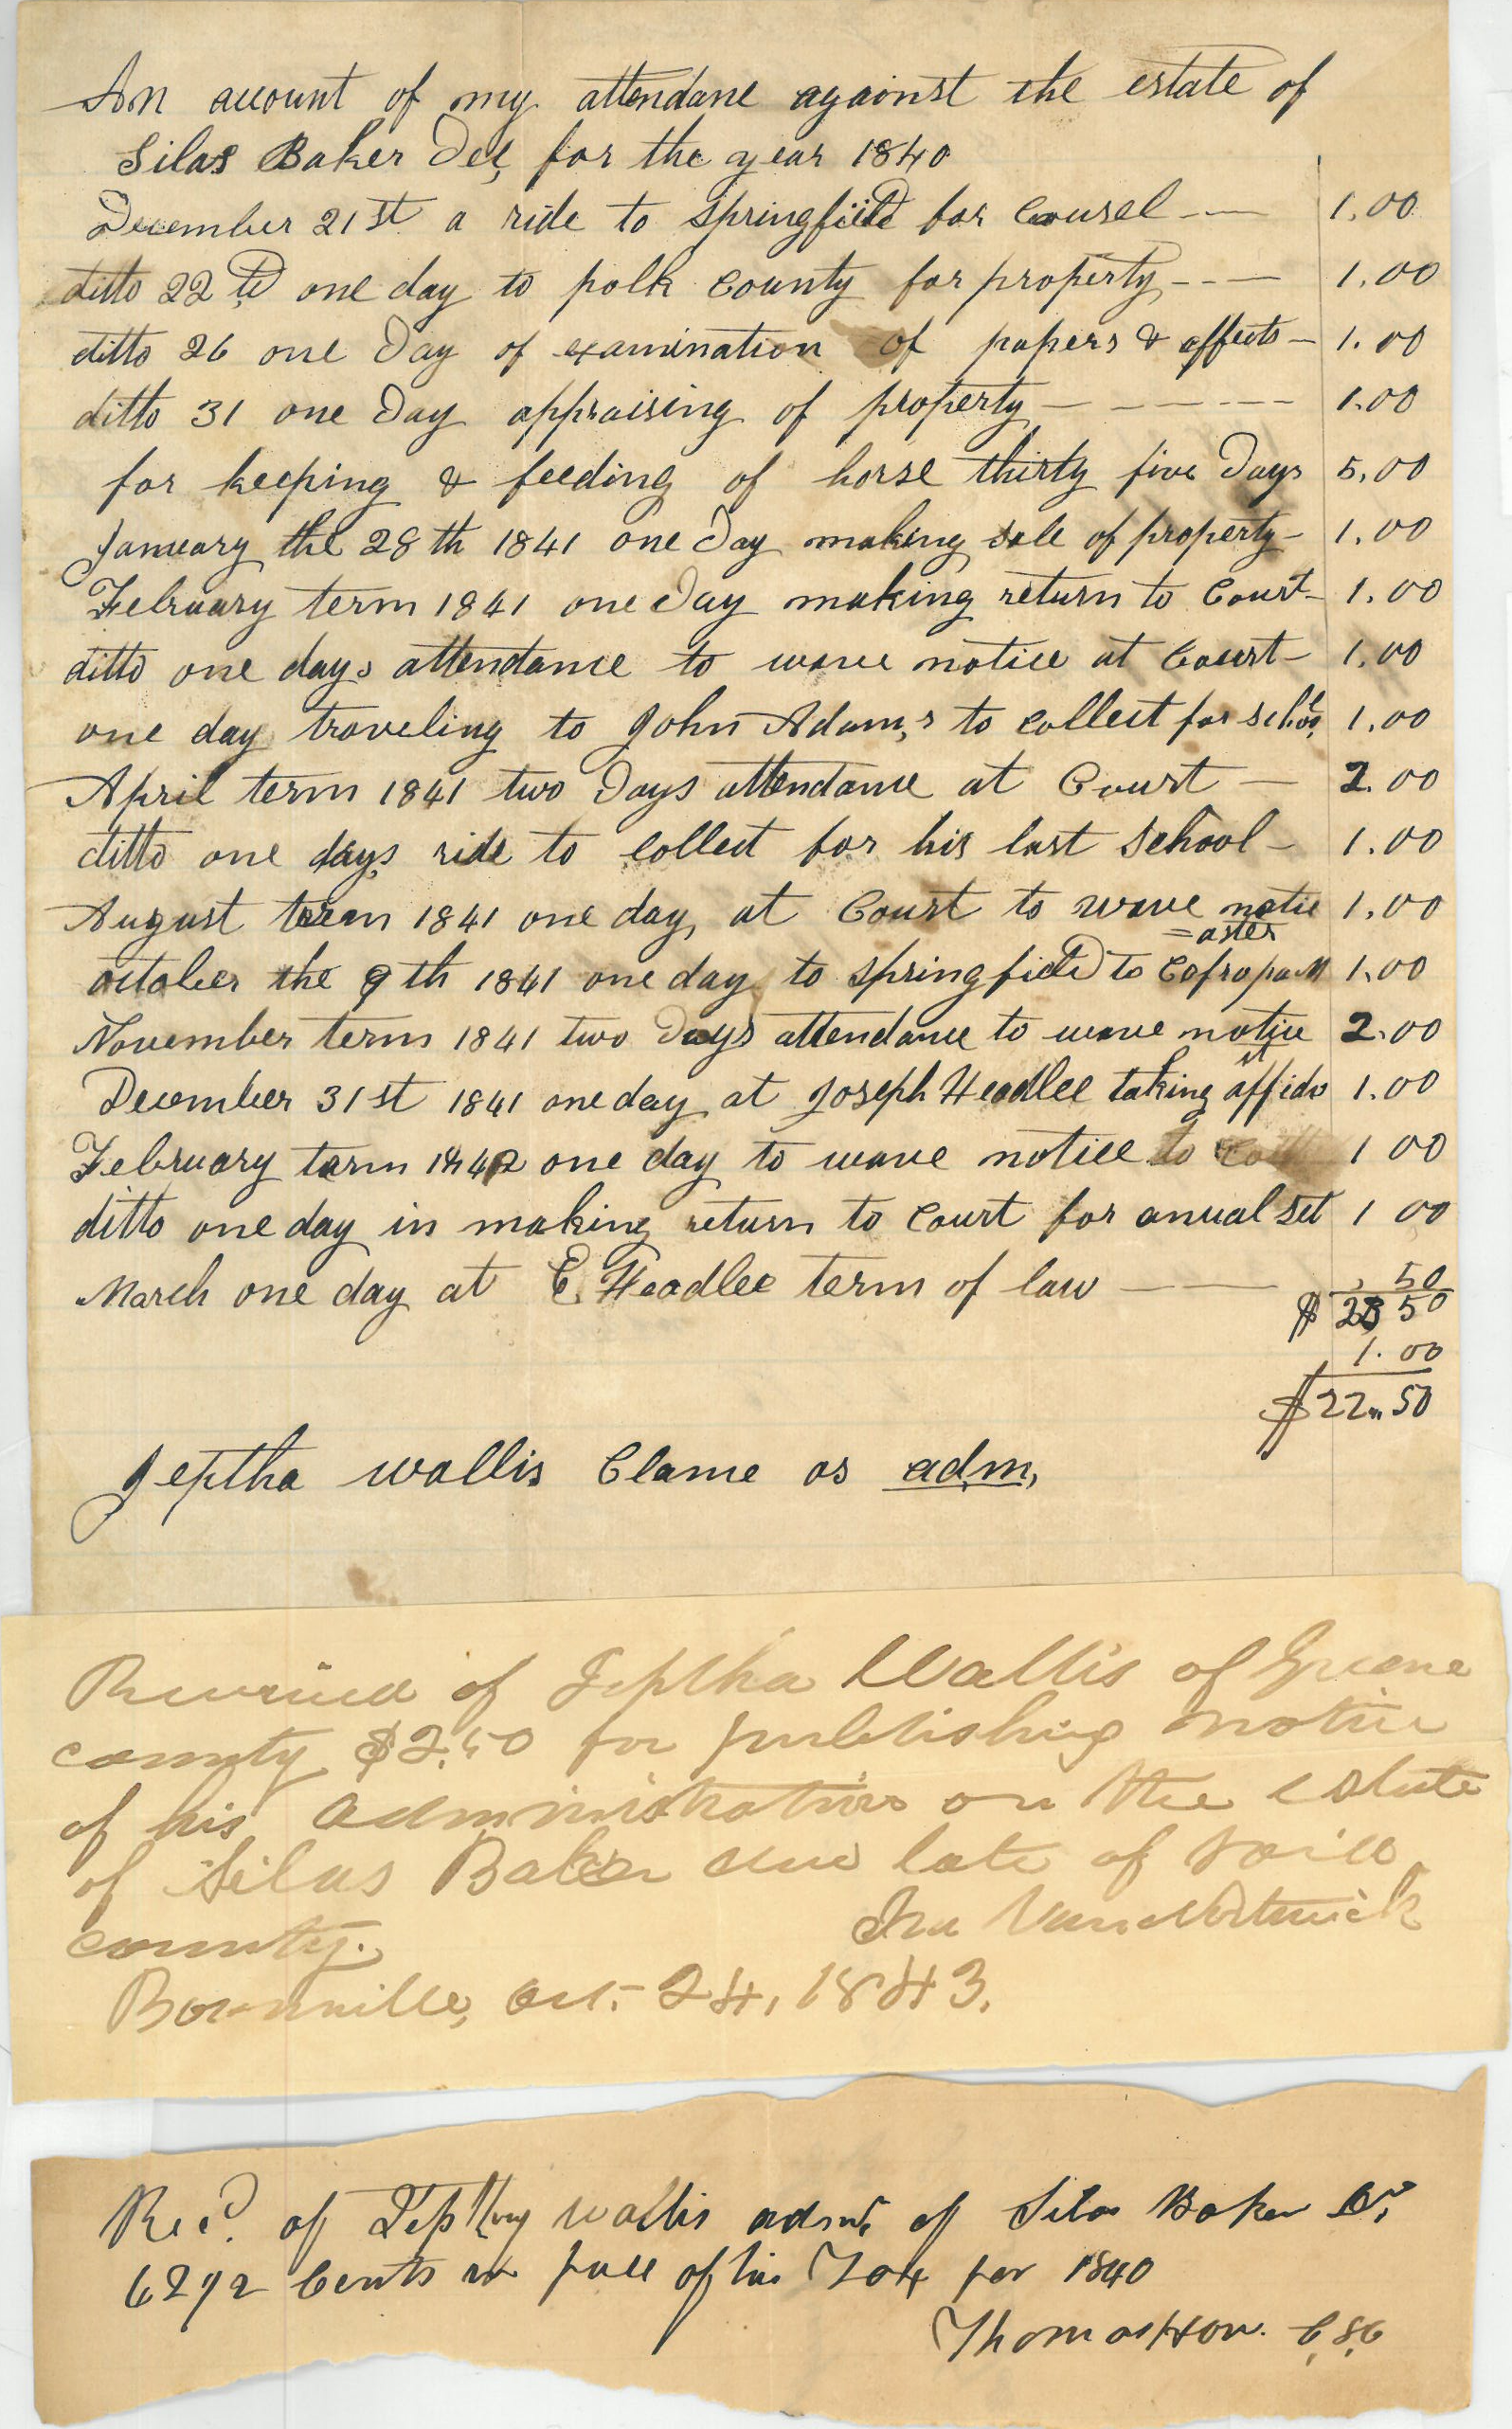 An account of my attendane against the estate of
Silas Baker Dec, for the year 1840
December 21st a ride to Springfield for Cousel -- — 1.00
ditto 22td one day to polk County for property --- — 1.00
ditto 26 one Day of examination of papers & affects — 1.00
ditto 31 one Day appraising of property — — — --- 1.00
for keeping & feeding of horse thirty five Days 5.00
January the 28th 1841 one Day making sale of property — 1.00
February term 1841 one Day making return to Court — 1.00
ditto one days attendance to wave notice at Court — 1.00
one day traveling to John Adam,s to Collect for School 1.00
April term 1841 two Days attendance at Court — 2.00
ditto one days ride to Collect for his last School — 1.00
August term 1841 one day at Court to wave notice 1.00
=aster
october the 9th 1841 one day to Springfield to 1.00
November term 1841 two Days attendance to wave notice 2.00
December 31st 1841 one day at Joseph Headlee taking affidavit 1.00
February term 1842 one day to wave notice to 1 00
ditto one day in making return to Court for anual set 1 00
March one day at E Headlee term of law — — , 50
$ 23 50
1. 00
$22.. 50
Jeptha Wallis Clame as adm,
Received of Jeptha Wallis of Greene
county $2.50 for publishing notice
of his administration on the estate
of Silas Baker late of said
county. Ira Van Nortwick
Boonville, Oct. 24, 1843.
Recd. of Wallis admr. of Silas Baker
62 1/2 Cents in full of his Tax for 1840
Thomas